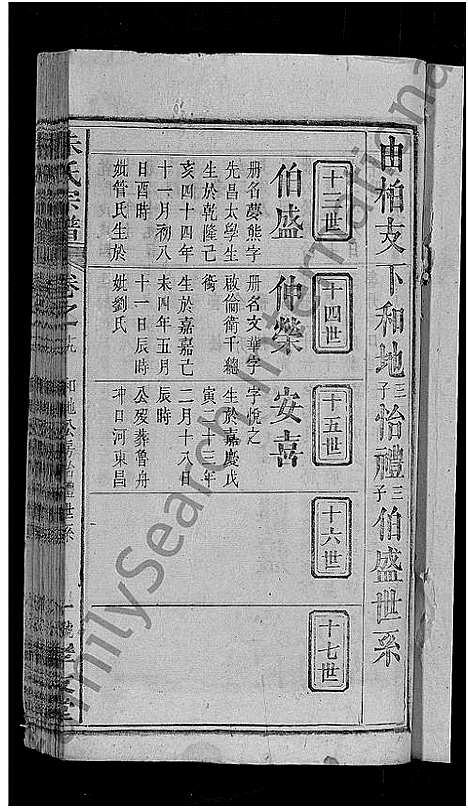 由柏支下和地三子怡禮三子伯盛世系
十三世
伯盛
册名夢熊字
先昌太學生
生於乾隆己
亥四十四年
十一月初八
日酉時
妣管氏生於
十四世
仲榮
册名文華字
啟倫衛千總
銜
生於嘉慶己
未四年五月
十一日辰時
妣劉氏
十五世
安喜
字悅之
生於嘉慶戊
寅二十三年
二月十八日
辰時
公歿葬魯舟
河東昌
十六世
十七世
朱氏宗譜
卷之一
世系
FamilySearch International